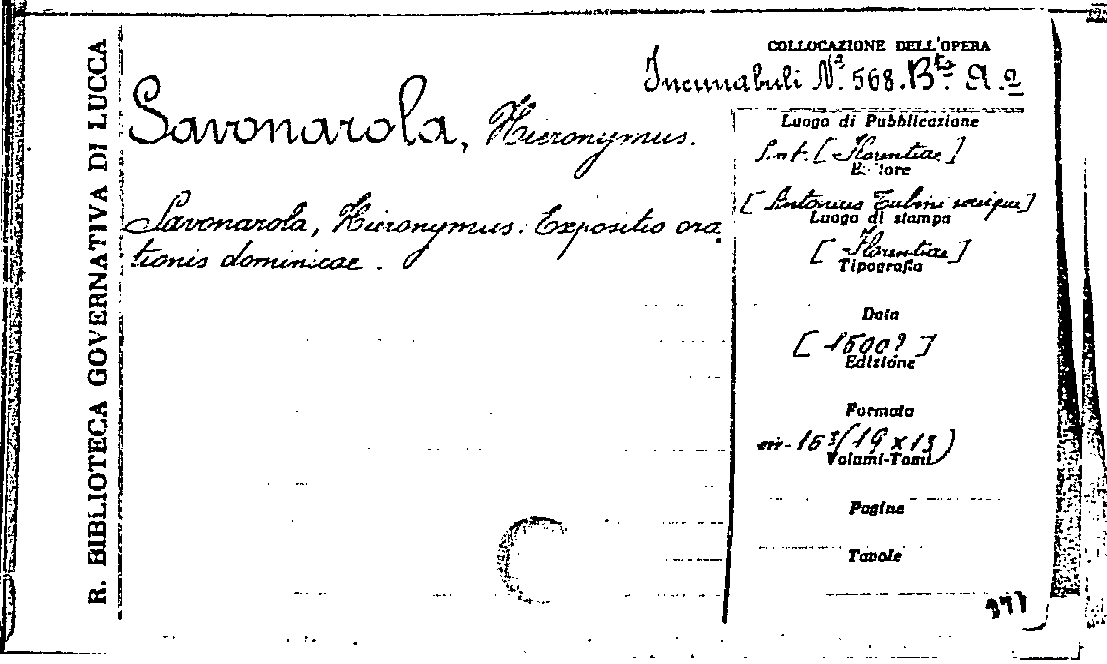 R. BIBLIOTECA GOVERNATIVA DI LUCCA
COLLOCAZIONE DELL'OPERA
Incunabuli Nº 568. Bta. A.2
Savonarola, Hieronymus.
Savonarola, Hieronymus. Expositio ora
tionis dominicae.
Luogo di Pubblicazione
S.n.t. [Florentiae]
Editore
[Antonius Tubini
Luogo di stampa
[Florentiae]
Tipografia
Data
[1500?]
Edizione
Formato
in-16º (19 x 13)
Volumi-Tomi
Pagine
Tavole